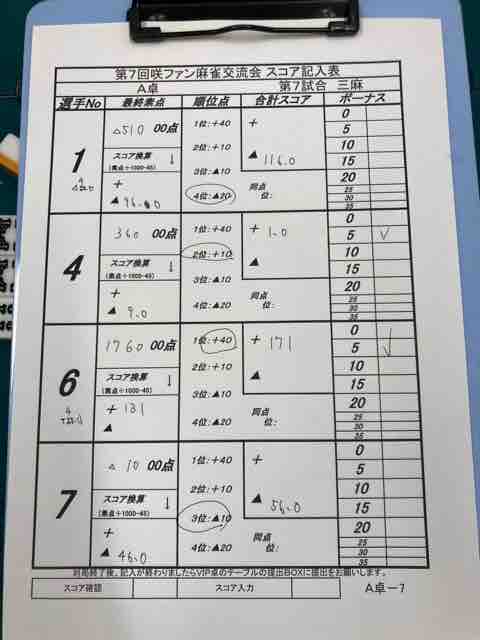 第7回咲ファン麻雀交流会 スコア記入表
A卓 第7試合 三麻
選手No 最終素点 順位点 合計スコア ボーナス
1
△510 00点
スコア換算 ↓
(素点÷1000-45)
+
▲ 96.0
1位:+40
2位:+10
3位:▲10
4位:▲20
+
▲ 116.0
同点
位:
0
5
10
15
20
25
30
35
4
360 00点
スコア換算 ↓
(素点÷1000-45)
+
▲ 9.0
1位:+40
2位:+10
3位:▲10
4位:▲20
+ 1.0
▲
同点
位:
0
5 ✓
10
15
20
25
30
35
6
1760 00点
スコア換算 ↓
(素点÷1000-45)
+ 131
▲
1位:+40
2位:+10
3位:▲10
4位:▲20
+ 171
▲
同点
位:
0
5 ✓
10
15
20
25
30
35
7
△ 10 00点
スコア換算 ↓
(素点÷1000-45)
+
▲ 46.0
1位:+40
2位:+10
3位:▲10
4位:▲20
+
▲ 56.0
同点
位:
0
5
10
15
20
25
30
35
対局終了後、記入が終わりましたらVIP卓のテーブルの提出BOXに提出をお願いします。
スコア確認 スコア入力 A卓ー7